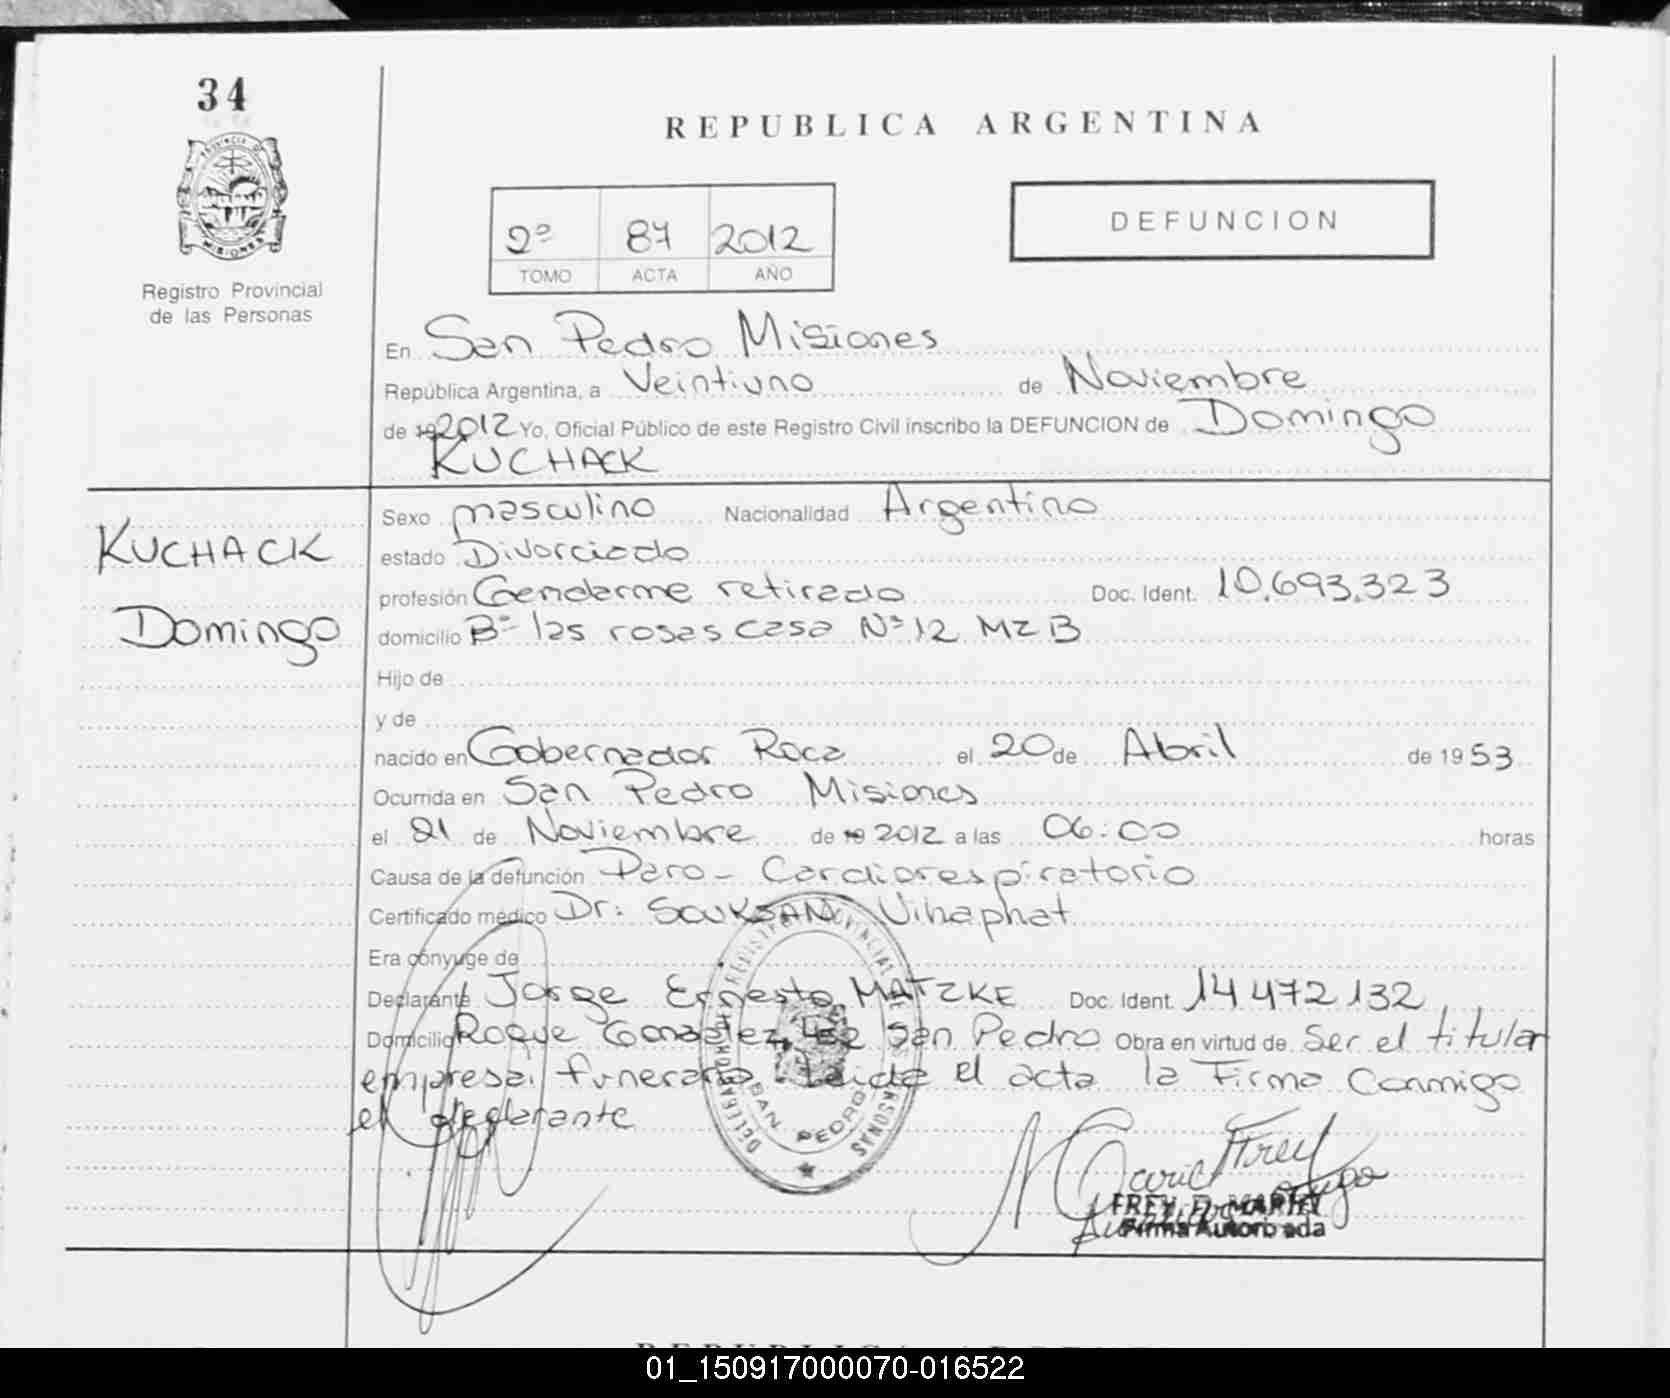 34
PROVINCIA D
MISIONES
Registro Provincial
de las Personas
REPUBLICA ARGENTINA
2º 87 2012
TOMO ACTA AÑO
DEFUNCION
En San Pedro Misiones
República Argentina, a Veintiuno de Noviembre
de 19 2012 Yo, Oficial Público de este Registro Civil inscribo la DEFUNCION de Domingo
KUCHACK
KUCHACK
Domingo
Sexo masculino Nacionalidad Argentino
estado Divorciado
profesión Gendarme retirado Doc. Ident. 10.693.323
domicilio Bº las rosas casa Nº 12 MZ B
Hijo de
y de
nacido en Gobernador Roca el 20 de Abril de 1953
Ocurrida en San Pedro Misiones
el 21 de Noviembre de 19 2012 a las 06:00 horas
Causa de la defunción Paro - Cardiorespiratorio
Certificado médico Dr: SOUKSAN Vihaphat
Era cónyuge de
Declarante Jorge Ernesto MATZKE Doc. Ident. 14.472.132
Domicilio Roque Gonzalez San Pedro Obra en virtud de Ser el titular
empresa funeraria Leida el acta la Firma Conmigo
el declarante
DELEGACION REGISTRO PROVINCIAL DE PERSONAS
SAN PEDRO
FREY
Firma Autorizada
REPUBLICA ARGENTINA
01_150917000070-016522